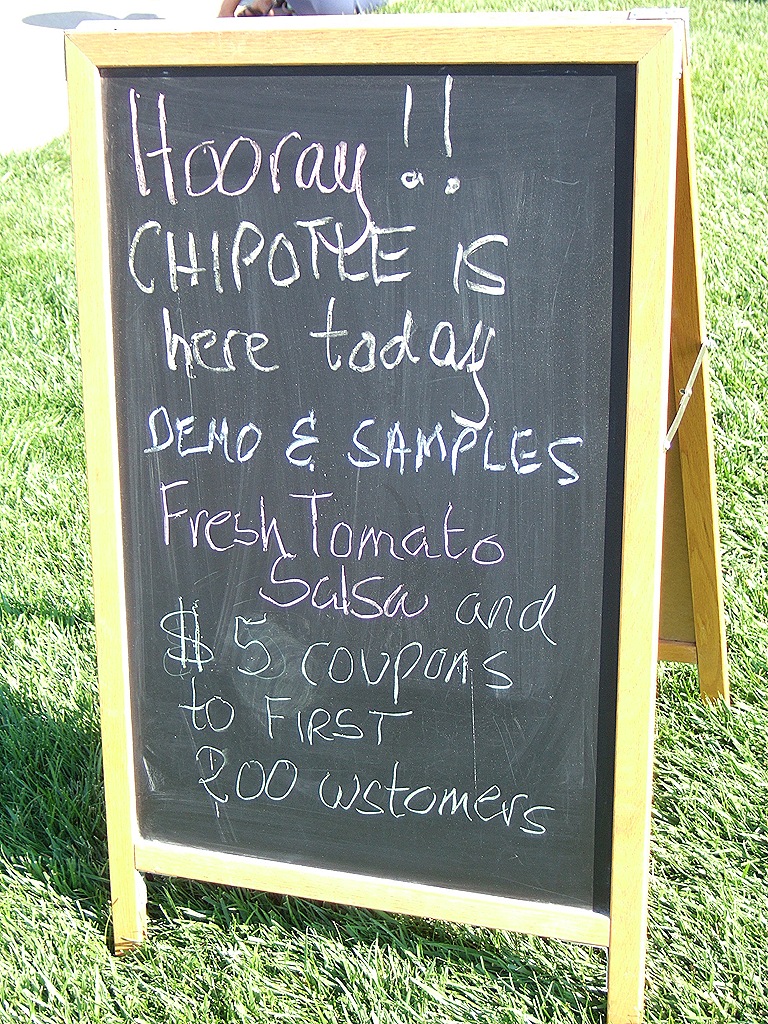 Hooray!!
CHIPOTLE IS
here today
DEMO & SAMPLES
Fresh Tomato
Salsa and
$5 coupons
to FIRST
200 customers